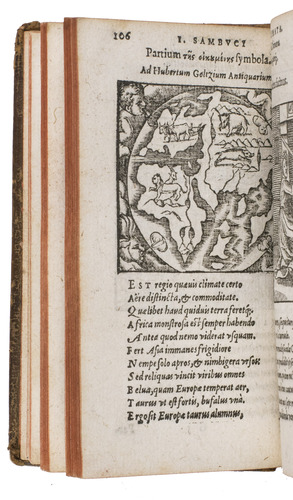 106
I. SAMBVCI
Partium τῆς οἰκουμένης symbola.
Ad Hubertum Golzium Antiquarium
EST regio quævis climate certo
Aëre distincta, & commoditate.
Quælibet haud quiduis terra feretq́;,
Africa monstrosa est semper habendo
Antea quod nemo viderat vsquam.
Fert Asia immanes frigidiore
Nempe solo apros, & nimbigera vrsos:
Sed reliquas vincit viribus omnes
Belua, quam Europæ temperat aer,
Taurus vt est fortis, bufalus vnà.
Ergo sit Europæ taurus alumnus,